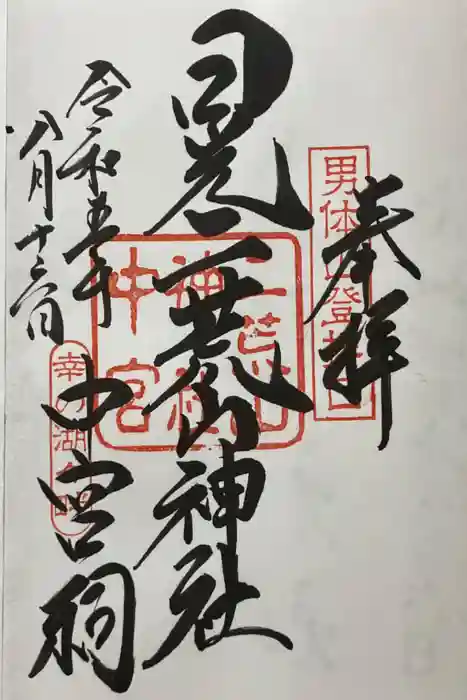 奉拝
男体山登拝口
日光二荒山神社
二荒山
神社
中宮
中宮祠
幸の湖
令和五年
八月十日